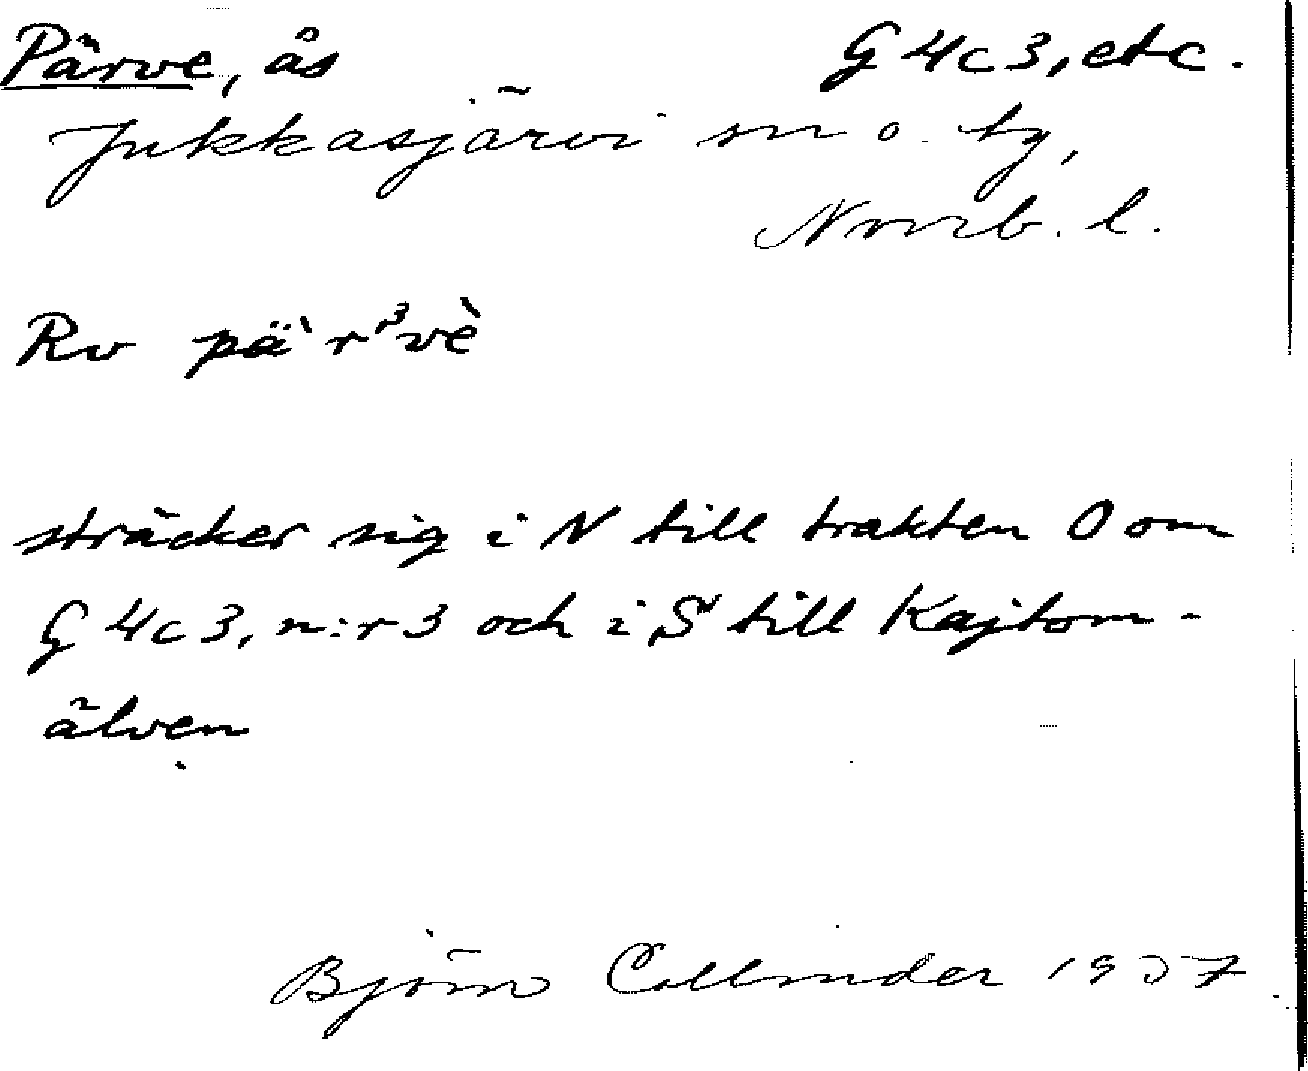 Pärve, ås G4c3, etc.
Jukkasjärvi sn o. tg,
Norrb. l.
Rv pä̀r³vè
sträcker sig i N till trakten O om
G4c3, n:r 3 och i S till Kajtom-
älven
Björn Collinder 1957